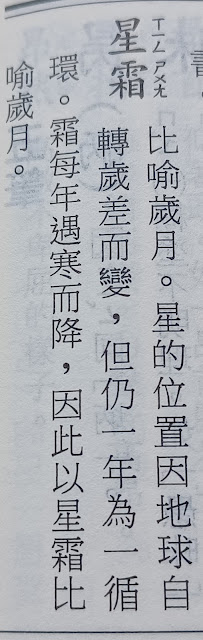 星霜 ㄒㄧㄥ ㄕㄨㄤ
比喻歲月。星的位置因地球自
轉歲差而變，但仍一年為一循
環。霜每年遇寒而降，因此以星霜比
喻歲月。